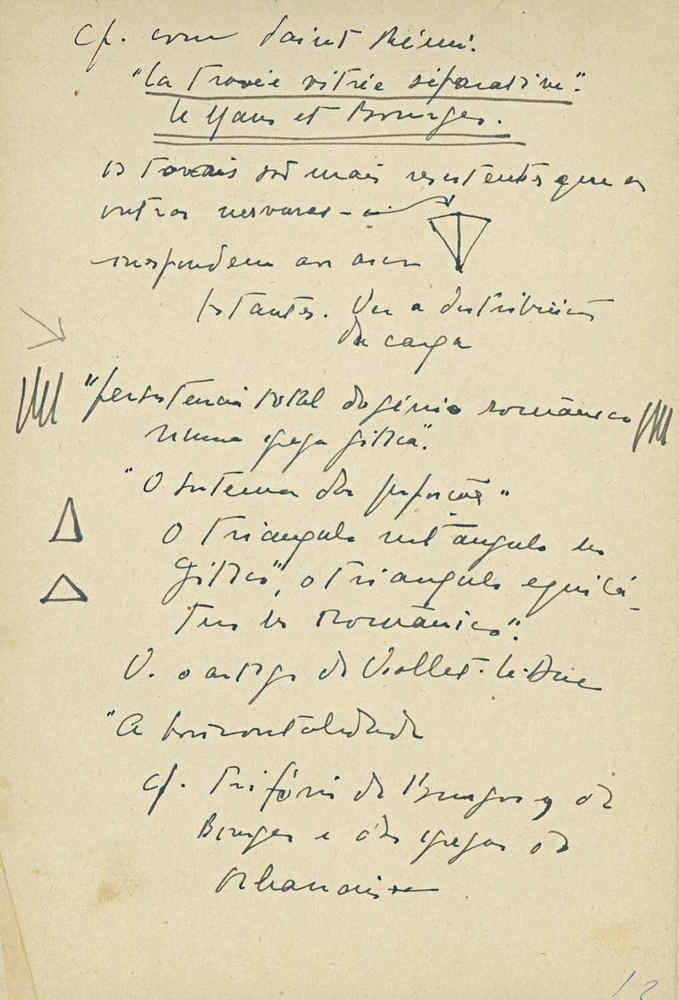 cf. com Saint Rémi.
"La travée vitrée séparative".
le Mans et Bourges.
os torais são mais resistentes que as
outras nervuras - a
correspondem aos arcos
Ver a distribuição
da carga
"persistencia total do génio românico
numa igreja gótica".
"O sistema das proporções"
O triangulo rectângulo no
Gótico", o triangulo equilá-
tero no românico".
V. o artigo de Viollet-le-Duc
"A horizontalidade
cf. trifório de Burgos, de
Bourges e das igrejas de